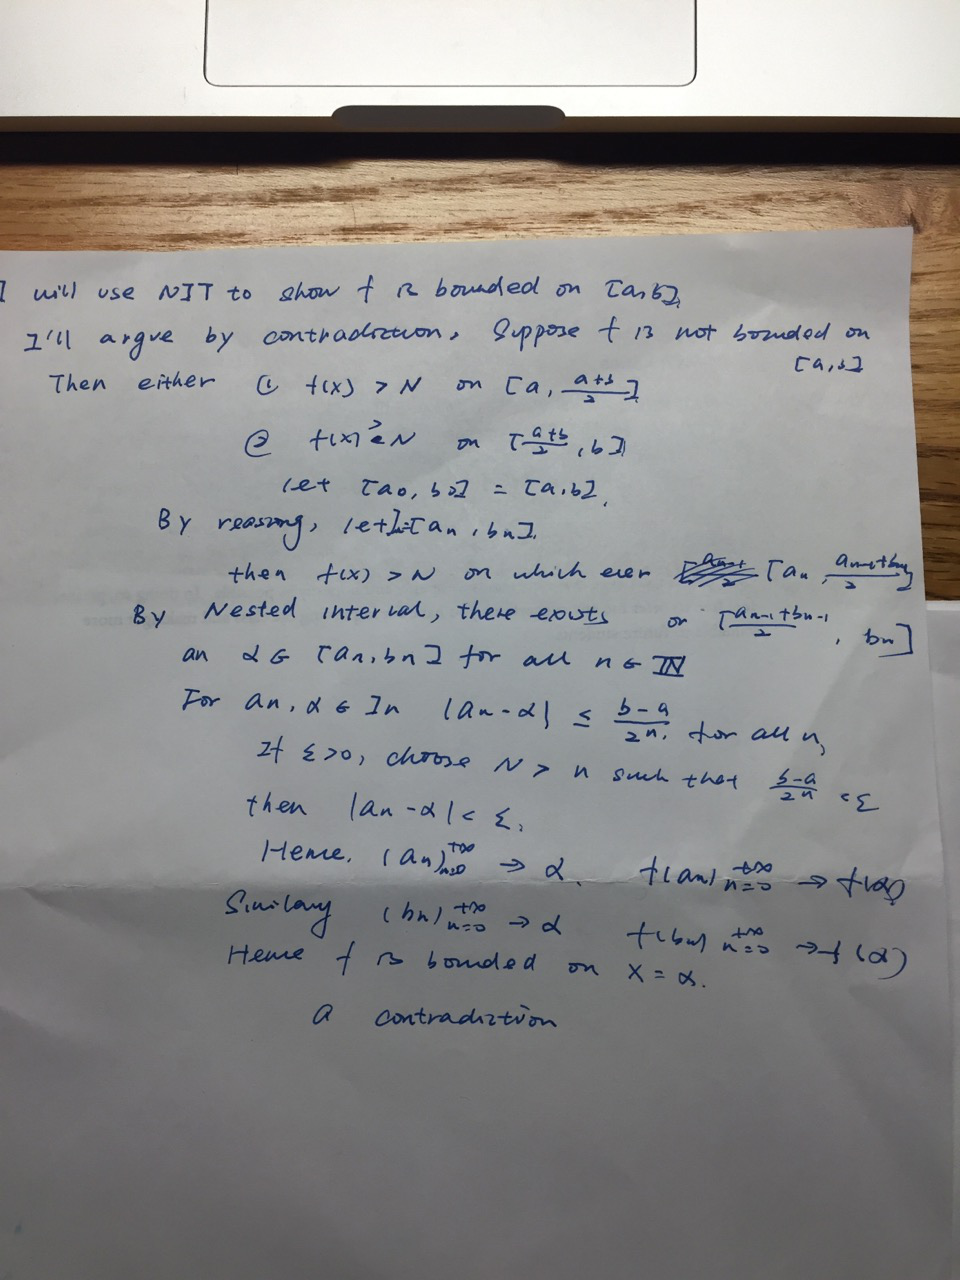 I will use NIT to show f is bounded on [a,b].
I'll argue by contradiction. Suppose f is not bounded on [a,b]
Then either ① f(x) > N on [a, (a+b)/2]
② f(x) > N on [(a+b)/2, b]
let [a0, b0] = [a,b].
By reasoning, let In=[an, bn].
then f(x) > N on which ever [an, (an-1+bn-1)/2]
or [(an-1+bn-1)/2, bn]
By Nested interval, there exists
an α ∈ [an, bn] for all n ∈ IN
For an, α ∈ In |an - α| ≤ (b-a)/2^n, for all n,
If ε>0, choose N > n such that (b-a)/2^n < ε
then |an - α| < ε.
Hence. (an)_{n=0}^{+∞} → α. f(an)_{n=0}^{+∞} → f(α)
Similary (bn)_{n=0}^{+∞} → α f(bn)_{n=0}^{+∞} → f(α)
Hence f is bounded on x = α.
a contradiction